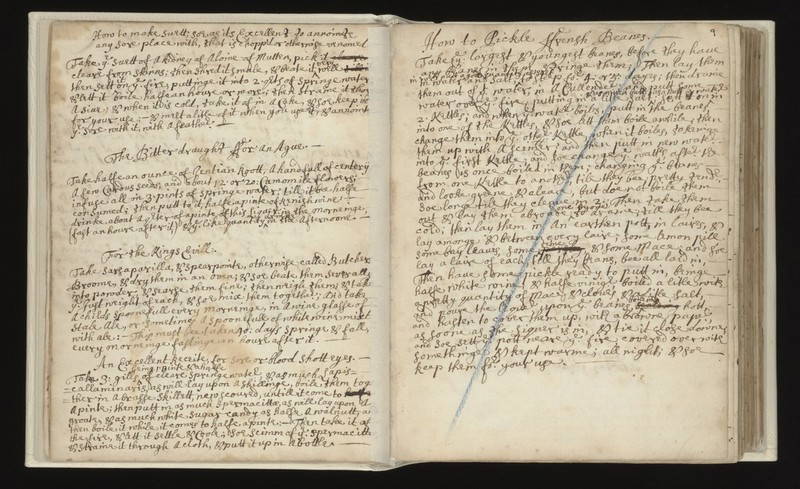 How to make Suett; soe as its Excellent to annointe
any sore place with, that is chopt or otherwise
Take ye Suett of a Kidney of a Loine of Mutton, pick it
cleare from skins, then shred it small, & beate it
then sett on ye fire, putting it into 2 qts of springe water
& lett it boile halfe an houre or more, then straine it
a sive; & when tis cold, take it of in a Cake, & soe keep it
for your use;— melt a litle of it when you use it, & annoint
ye sore with it, with a feather.—
The Bitter draught ffor an Ague.—
Take halfe an ounce of Gentian Roott, a handfull of centory
a few Carduus seeds, and about 12 or 20 Camomile flowers
infuse all in 3 pints of springe water till it be halfe
consumed; then putt to it halfe a pinte of Rhenish wine;
drinke about a qter of a pinte of this liquor in the morneinge,
(fast an houre after it) & ye like quantity in the afternoone.
For the Kings Evill.
Take sarsaparilla, & spearpoints, otherwise called Butcher
Broome, & dry them in an oven; & soe beate them severally
into powder, & searse them fine; then weigh them, & take
a just weight of each, & soe mix them together; And take
a childs spoonefull every morneinge, in a wine glasse of
Stale Ale, or sometimes a spoonefull of white wine mixt
with ale:— This must bee taken 40: days Springe & fall,
every morneinge fastinge an houre after it.—
An Excellent receite, for sore or blood shott eyes.—
being a pinte & a halfe
Take 3: gills of cleare Springe water, & as much Lapis=
=callaminaris, as will lay upon a shillinge, boile them tog
ther in a brasse Skillett, new scoured, untill it come to
a pinte; then putt in as much spermacittae, as will lay upon a
groate, & as much white sugar candy as halfe a walnutt, a
then boile it while it comes to halfe a pinte:— Then take it of
the fire, & lett it settle & Coole; & soe scimm of ye: spermacitt
& straine it through a cloth, & putt it up in a bottle.—
9
How to Pickle ffrensh Beanes.—
Take ye largest & youngest beanes, before they have
in them; Then lay them
them out of ye water, in a Cullender
water over ye fire, puttinge in
2: Kettles; and when ye water boiles, putt in the beanes
into one of the Kettles, & soe lett them boile awhile; then
change them into ye other Kettle, when it boiles, takeinge
them up with a scimer; and then putt in new water
into ye first Kettle; and soe change ye water after the
beanes is once boiled in them; changeing ye beanes
from one Kettle to another, till they bee pretty tender
and looke greene, & cleare, but doe not boile them
soe longe till they cleave in 2:; Then take them
out & lay them abroade, to draine, till they bee
cold; then lay them in an earthen pott, in laires, &
lay amongst, & betweene every laire, some Lemon pill
some bay leaves, some & some Mace; and soe
lay a laire of each, till they beans, bee all laid in,
Then have some pickle ready to putt in, beinge
halfe white wine, & halfe vinegar, boiled a like with
a pretty quantity of Mace, & Cloves, & a litle Salt,
and poure the Liquor upon ye beanes, hott,
and hasten to cover them up, with a browne paper,
as soone as the liquor is in, & tie it close downe
and soe sett ye pott neare ye fire, covered over with
somethinge, & kept warme, all night; & soe
keep them for your use.—